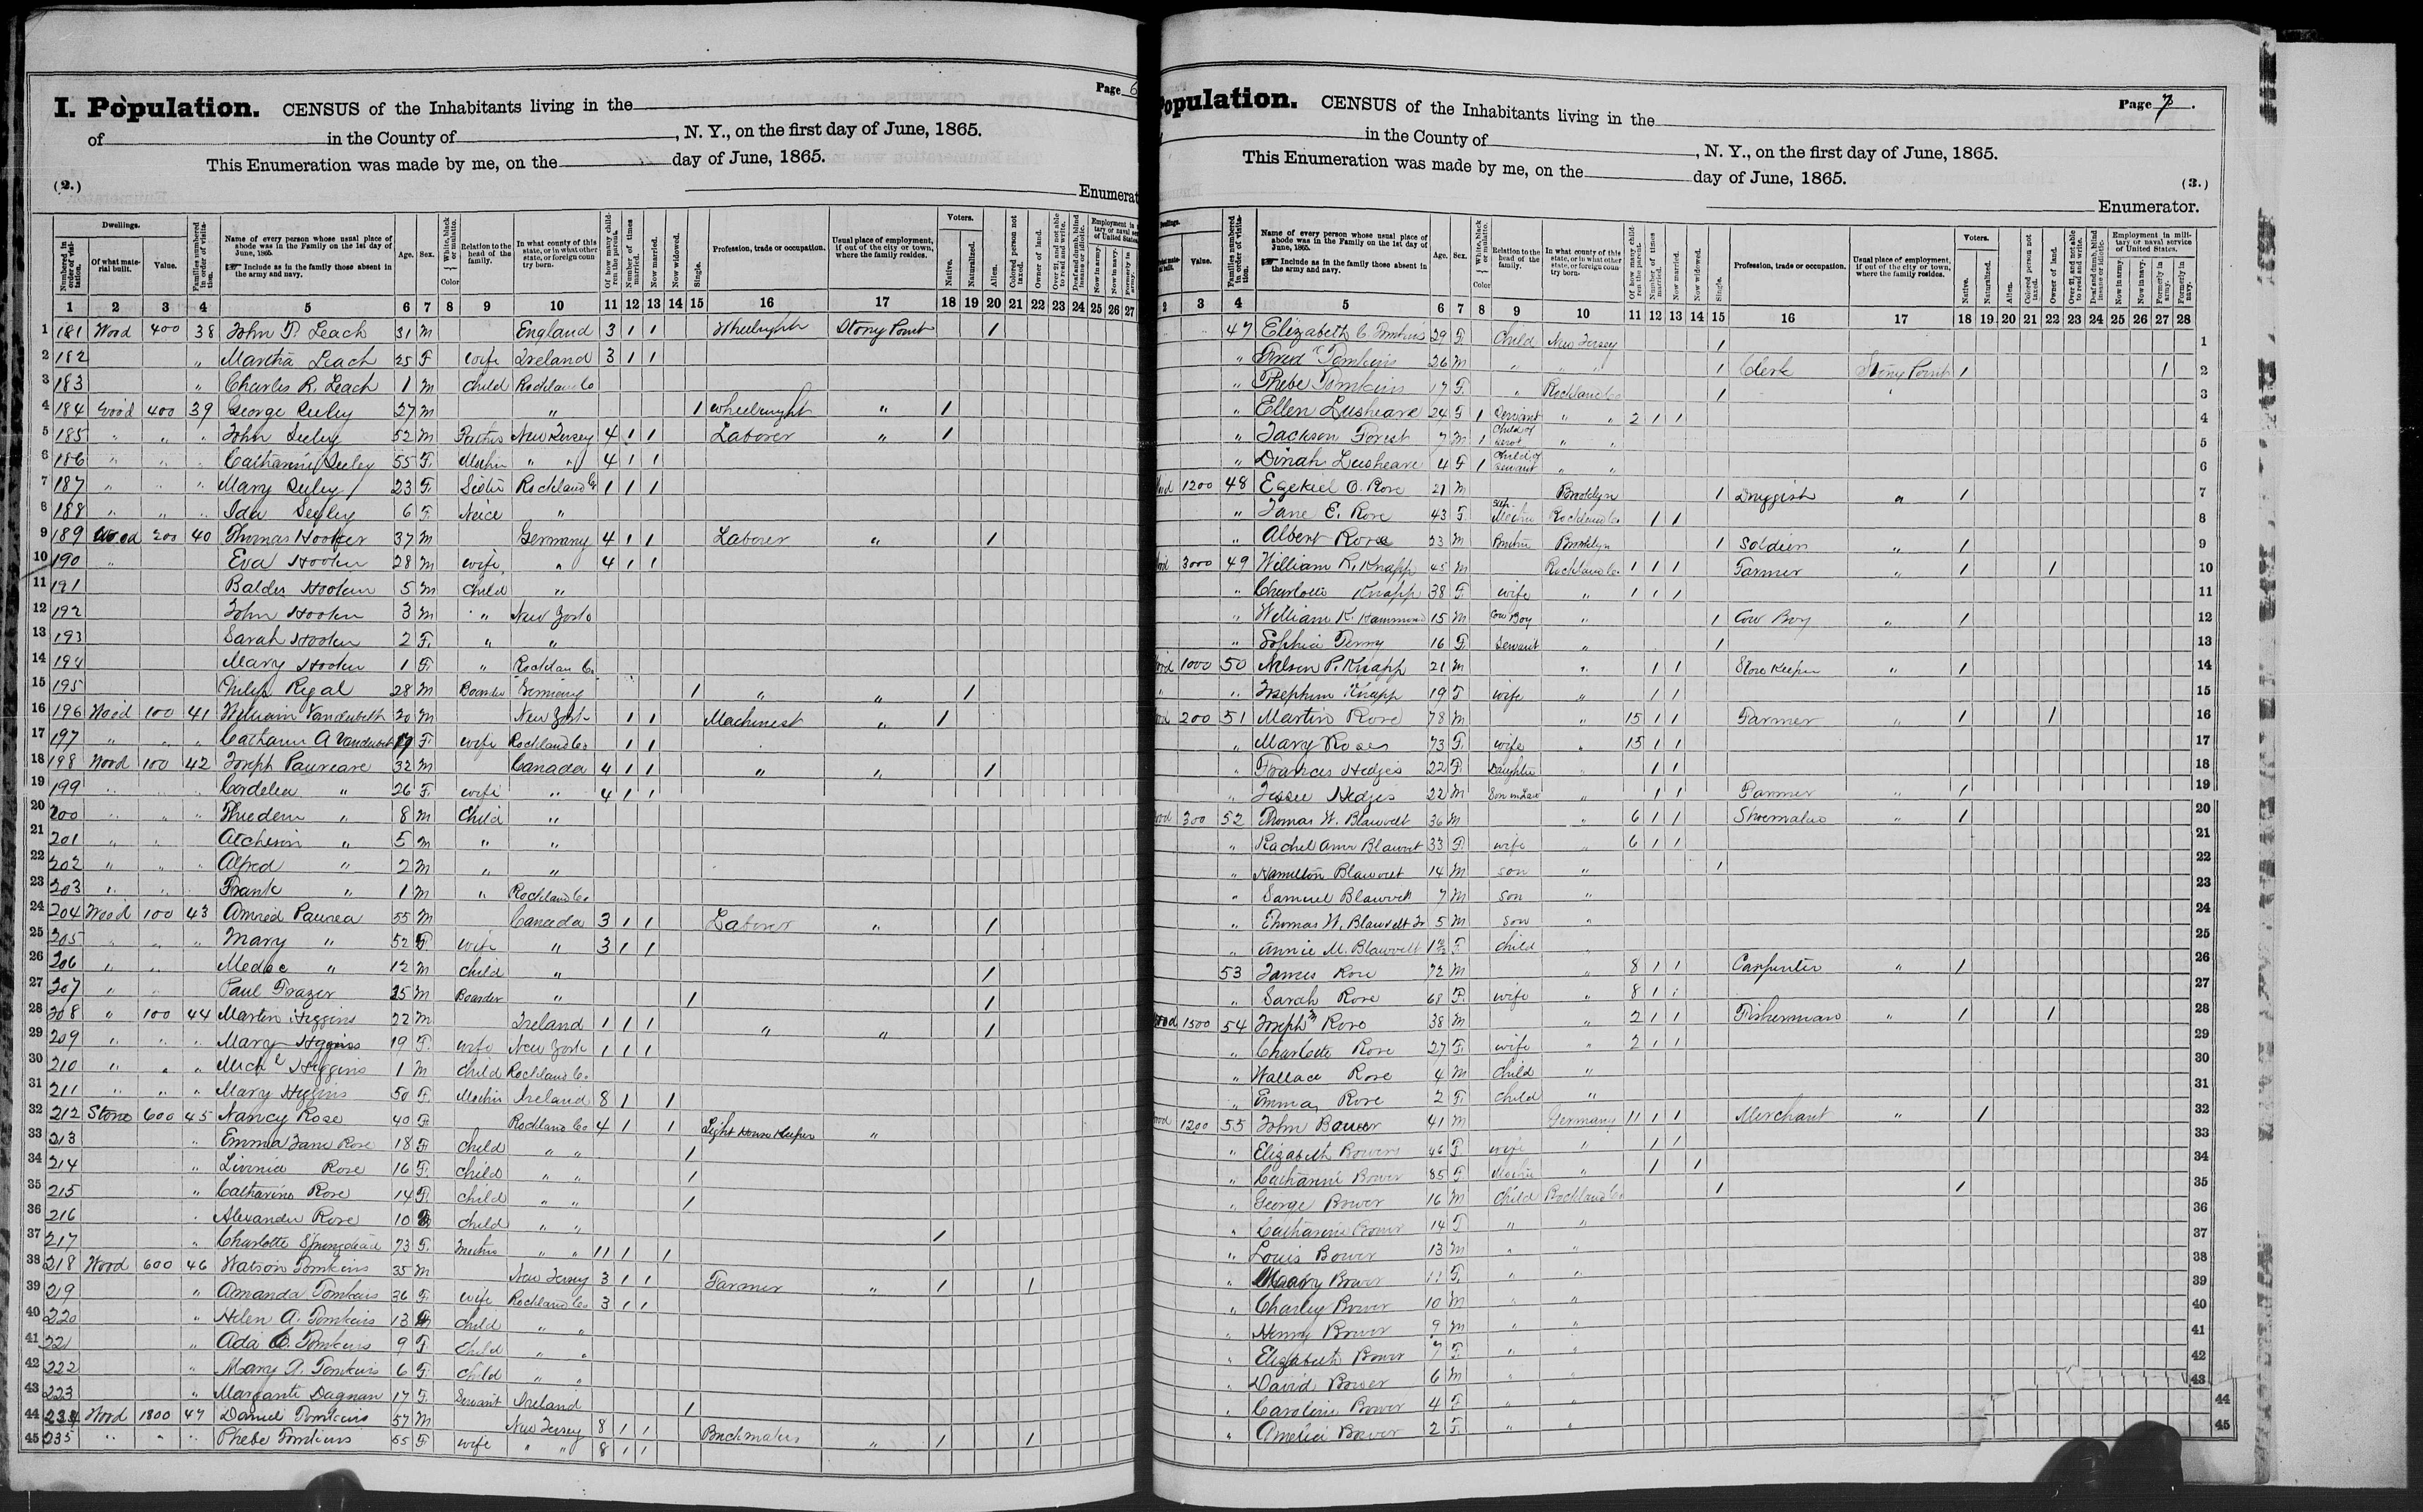 Page 6
I. Population. CENSUS of the Inhabitants living in the
of in the County of , N. Y., on the first day of June, 1865.
This Enumeration was made by me, on the day of June, 1865.
(2.)
Enumerat
Dwellings. Voters. Employment in
Numbered in order of visitation. Of what material built. Value. Families numbered in order of visitation. Name of every person whose usual place of abode was in the Family on the 1st day of June, 1865. Include as in the family those absent in the army and navy. Age. Sex. White, black or mulatto. Color Relation to the head of the family. In what county of this state, or in what other state, or foreign country born. Of how many children the parent. Number of times married. Now married. Now widowed. Single. Profession, trade or occupation. Usual place of employment, if out of the city or town, where the family resides. Native. Naturalized. Alien. Colored person not taxed. Owner of land. Over 21, and not able to read and write. Deaf and dumb, blind insane or idiotic. Now in army. Now in navy. Formerly in army.
1 2 3 4 5 6 7 8 9 10 11 12 13 14 15 16 17 18 19 20 21 22 23 24 25 26 27
1 181 Wood 400 38 John T. Leach 31 M England 3 1 1 Wheelright Stony Point 1
2 182 " Martha Leach 25 F wife Ireland 3 1 1
3 183 " Charles R. Leach 1 M Child Rockland Co
4 184 Wood 400 39 George Seeley 27 M " 1 Wheelwright " 1
5 185 " " " John Seeley 52 M New Jersey 4 1 1 Laborer " 1
6 186 " " " Catharine Seeley 55 F. Mother " " 4 1 1
7 187 " " " Mary Seeley 23 F. Sister Rockland Co 1 1 1
8 188 " " " Ida Seeley 6 F. Neice "
9 189 Wood 200 40 Thomas Hooker 37 M Germany 4 1 1 Laborer " 1
10 190 " Eva Hooker 28 M wife " 4 1 1
11 191 Balder Hooker 5 M Child "
12 192 John Hooker 3 M " New York
13 193 Sarah Hooker 2 F. " "
14 194 Mary Hooker 1 F. " Rockland Co.
15 195 Philip Rigal 28 M Boarder Germany 1 " " 1
16 196 Wood 100 41 William Vanderbeth 20 M New York 1 1 Machinest " 1
17 197 " " " Catharin A Vanderbeth 19 F. wife Rockland Co 1 1
18 198 Wood 100 42 Joseph Paureare 32 M Canada 4 1 1 " " 1
19 199 " " " Cordelia " 26 F. wife " 4 1 1
20 200 " " " " 8 M Child "
21 201 " " Atcheson " 5 m " "
22 202 " " Alfred " 2 M " "
23 203 " " Frank " 1 M " Rockland Co
24 204 Wood 100 43 Paurea 55 M Canada 3 1 1 Laborer " 1
25 205 " " " Mary " 52 F wife " 3 1 1
26 206 " " Medoc " 12 M child " 1
27 207 " " Paul Frazer 35 M Boarder " 1 1
28 208 " 100 44 Martin Higgins 22 M Ireland 1 1 1 " " 1
29 209 " " " Mary Higgins 19 F. wife New York 1 1 1
30 210 " " " Michl Higgins 1 M child Rockland Co.
31 211 " " " Mary Higgins 50 F. Mother Ireland 8 1 1
32 212 Stone 600 45 Nancy Rose 40 F Rockland Co 4 1 1 Light House Keeper "
33 213 " Emma Jane Rose 18 F child " " 1
34 214 " Livinia Rose 16 F. child " " 1
35 215 " Catharine Rose 14 F. child " " 1
36 216 " Alexander Rose 10 M child " "
37 217 " Charlotte Springstead 73 F. Mother " " 11 1 1 1
38 218 Wood 600 46 Watson Tomkins 35 M New Jersey 3 1 1 Farmer " 1 1
39 219 " Amanda Tomkins 36 F. wife Rockland Co 3 1 1
40 220 " Helen A. Tomkins 13 child " "
41 221 " Ada C. Tomkins 9 F child " "
42 222 " Mary A. Tomkins 6 F. child " "
43 223 " Margante Dagnan 17 F. Servant Ireland 1
44 234 Wood 1800 47 Daniel Tomkins 57 M New Jersey 8 1 1 Brickmaker " 1 1
45 235 " " " Phebe Tomkins 55 F. wife " " 8 1 1
Page 7.
Population. CENSUS of the Inhabitants living in the
in the County of , N. Y., on the first day of June, 1865.
This Enumeration was made by me, on the day of June, 1865.
(3.)
Enumerator.
Dwellings. Voters. Employment in military or naval service of United States.
Value. Families numbered in order of visitation. Name of every person whose usual place of abode was in the Family on the 1st day of June, 1865. Include as in the family those absent in the army and navy. Age. Sex. White, black or mulatto. Color Relation to the head of the family. In what county of this state, or in what other state, or foreign country born. Of how many children the parent. Number of times married. Now married. Now widowed. Single. Profession, trade or occupation. Usual place of employment, if out of the city or town, where the family resides. Native. Naturalized. Alien. Colored person not taxed. Owner of land. Over 21, and not able to read and write. Deaf and dumb, blind insane or idiotic. Now in army. Now in navy. Formerly in army. Formerly in navy.
2 3 4 5 6 7 8 9 10 11 12 13 14 15 16 17 18 19 20 21 22 23 24 25 26 27 28
47 Elizabeth C Tomkins 29 F Child New Jersey 1 1
" Fred Tomkins 26 M " " " 1 Clerk Stony Point 1 1 2
" Phebe Tomkins 17 F. " Rockland Co 1 3
" Ellen Lusheare 24 F 1 Servant " " 2 1 1 4
" Jackson Forest 7 M 1 Child of Servt " " 5
" Dinah Lusheare 4 F 1 Child of Servant " " 6
1200 48 Ezekiel O. Rose 21 M Brooklyn 1 Druggist " 1 7
" Jane E. Rose 43 F. Step-Mother Rockland Co. 1 1 8
" Albert Rose 23 M Brother Brooklyn 1 Soldier " 1 9
3000 49 William R. Knapp 45 M Rockland Co. 1 1 1 Farmer " 1 1 10
" Charlotte Knapp 38 F. wife " 1 1 1 11
" William K. Hammond 15 M Cow Boy " 1 Cow Boy " 1 12
" Sophia Perry 16 F Servant " 1 13
1000 50 Nelson P. Knapp 21 M " 1 1 Store Keeper " 1 14
" " Josephine Knapp 19 F wife " 1 1 15
200 51 Martin Rose 78 M " 15 1 1 Farmer " 1 1 16
" Mary Roses 73 F. wife " 15 1 1 17
" Frances Hedges 22 F. Daughter " 1 1 18
" Jessee Hedges 22 M Son in Law " 1 1 Farmer " 1 19
300 52 Thomas W. Blauvelt 36 M " 6 1 1 Shoemaker " 1 20
" Rachel Ann Blauvelt 33 F. wife " 6 1 1 21
" Hamilton Blauvelt 14 M son " 1 22
" Samuel Blauvelt 7 M son " 23
" Thomas W. Blauvelt Jr 5 M son " 24
" Annie M. Blauvelt F. child " 25
53 James Rose 72 M " 8 1 1 Carpenter " 1 26
" Sarah Rose 68 F. wife " 8 1 1 27
1500 54 Joseph Rose 38 M " 2 1 1 Fisherman " 1 1 28
" Charlotte Rose 27 F. wife " 2 1 1 29
" Wallace Rose 4 M Child " 30
" Emma Rose 2 F. Child " 31
1200 55 John Bower 41 M Germany 11 1 1 Merchant " 1 32
" Elizabeth Bowers 46 F wife " 1 1 33
" Catharine Bower 85 F Mother " 1 1 34
" George Bower 16 M Child Rockland Co 1 1 35
" Catharine Bower 14 F " " 36
" Louis Bower 13 M " " 37
" Mary Bower 11 F. " " 38
" Charley Bower 10 M " " 39
" Henry Bower 9 M " " 40
" Elizabeth Bower 7 F. " " 41
" David Bower 6 M " " 42
" Caroline Bower 4 F " " 43
" Amelia Bower 2 F. " " 44
45